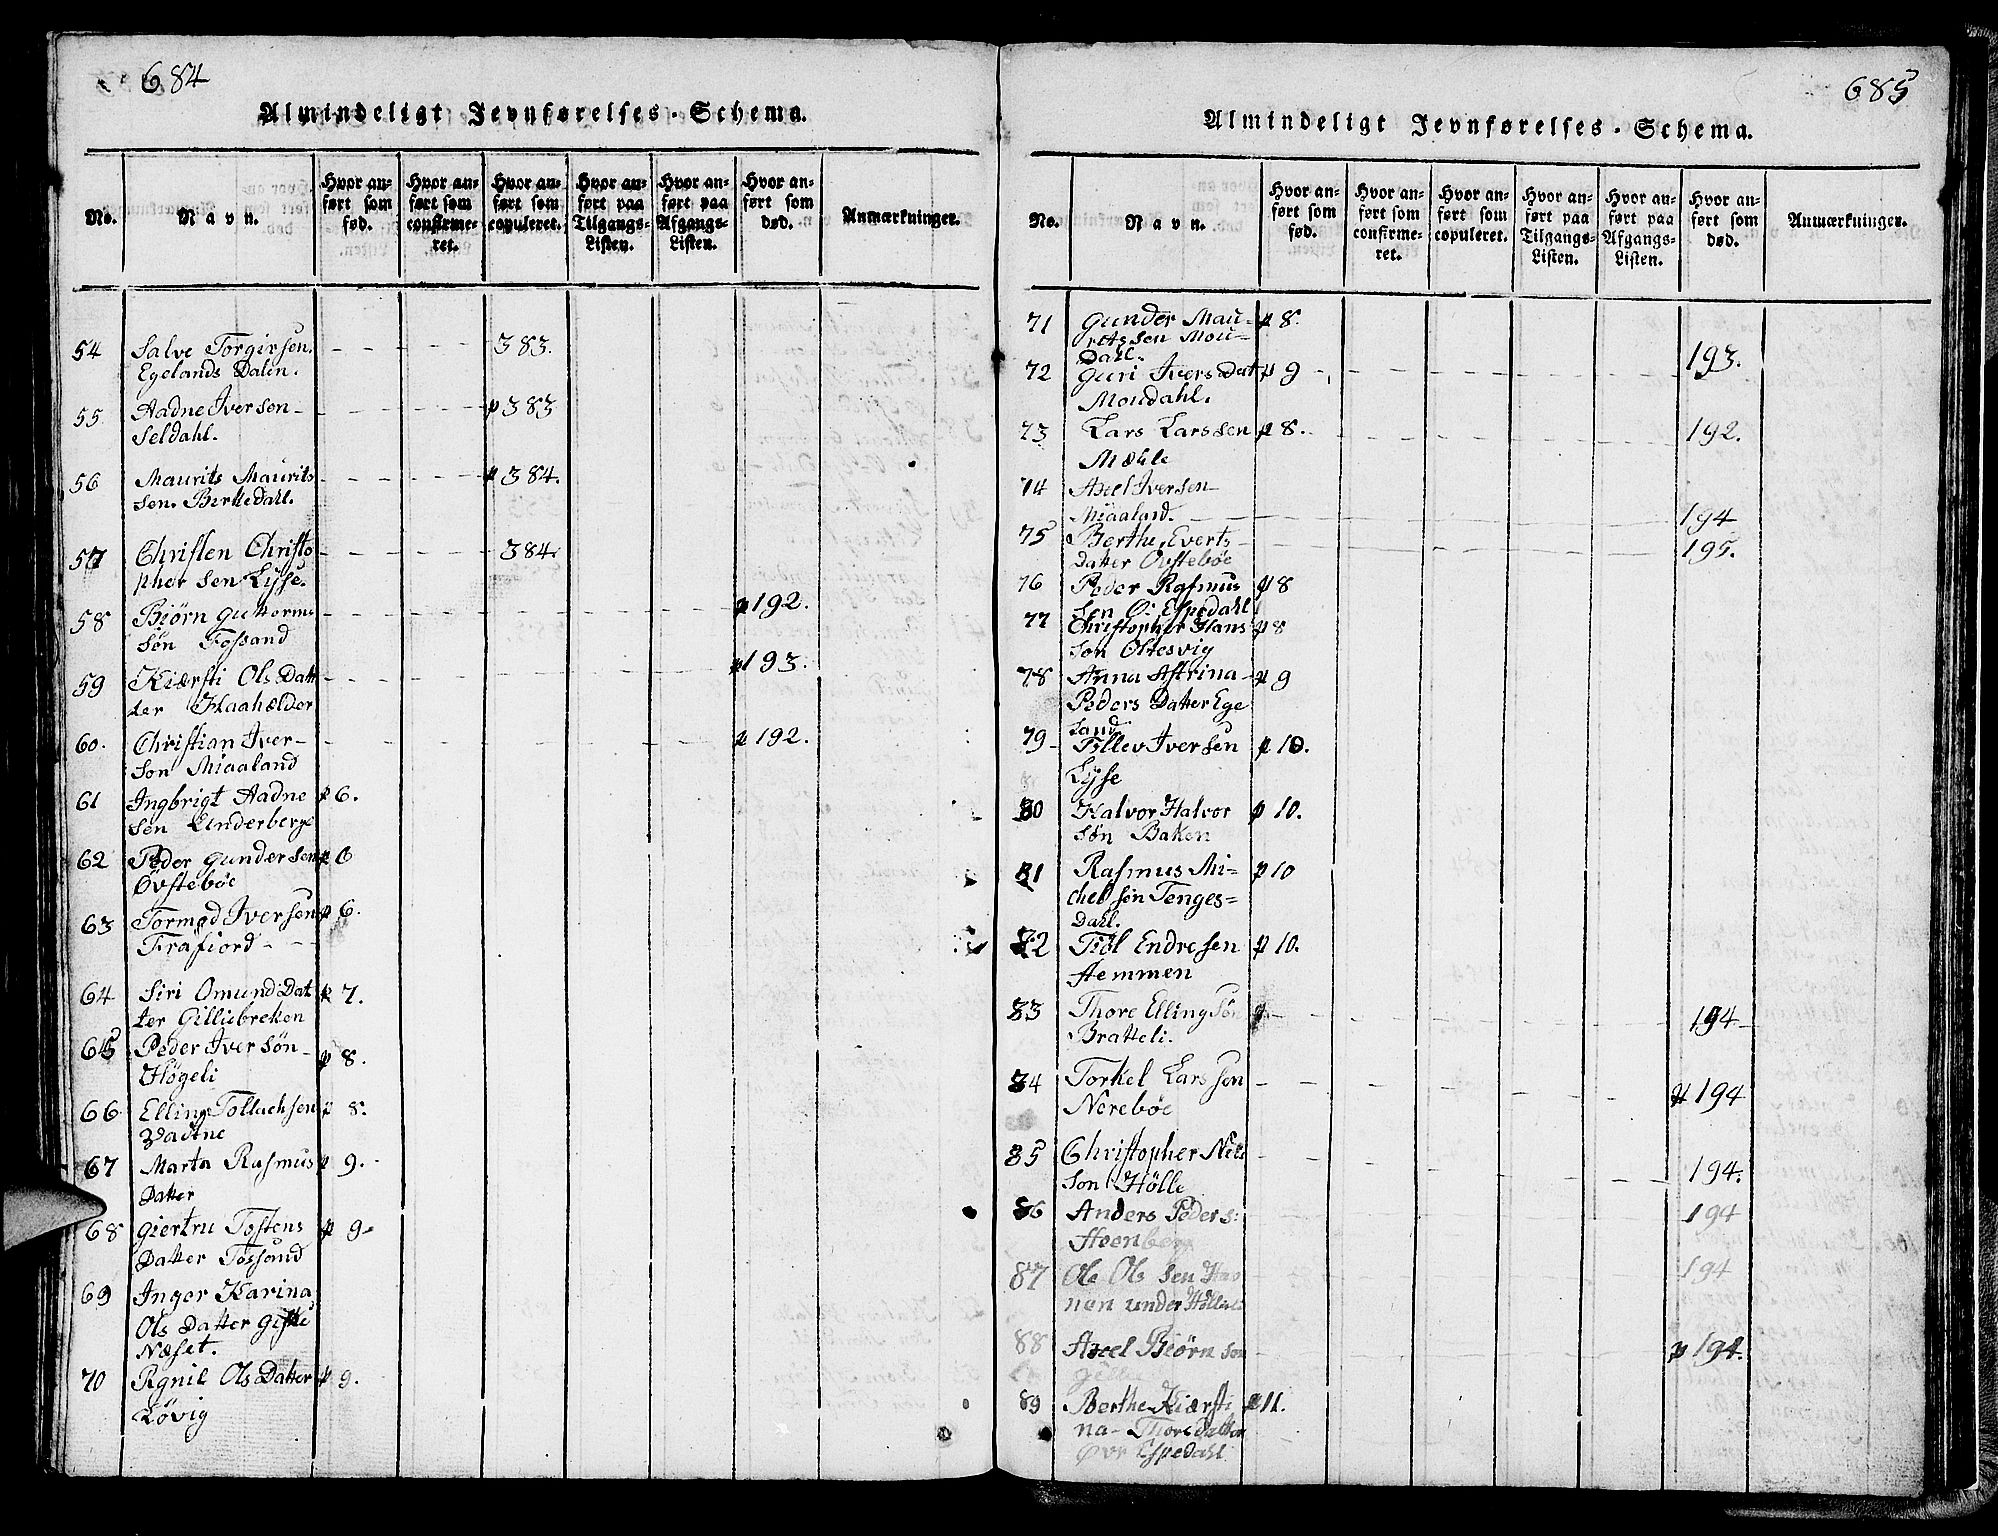 684
Almindeligt Jevnførelses-Schema.
No.
Navn.
Hvor an-
ført som
fød.
Hvor an-
ført som
confirme-
ret.
Hvor an-
ført som
copuleret.
Hvor an-
ført paa
Tilgangs-
Listen.
Hvor an-
ført paa
Afgangs-
Listen.
Hvor an-
ført som
død.
Anmærkninger.
54 Salve Torgirsen 383.
Egelands Dalen.
55 Aadne Iversen p 383
Seldahl.
56 Maurits Maurits p 384.
sen. Birkedahl.
57 Christen Christo 384.
pher sen Lysse.
58 Biørn Guttorms p 192.
søn Fossand
59 Kiærsti Ols Datt p 193.
ter Haahelder
60. Christian Iver- p 192.
son Miaaland
61 Ingbrigt Aadne p 6.
sen Underberge
62 Peder Gundersen p 6
Øvstebøe
63 Tormod Iversen p 6.
Frafiord
64 Siri Omund Dat p 7.
ter Gilliebreken
65 Peder Iver søn p 8.
Høgeli
66 Elling Tollachsen p 8.
Vadtne
67 Marta Rasmus p 9.
Datter
68 Giertru Tostens p 9-
Datter Fossand
69 Inger Karina
Ols Datter Giske
Næset.
70 Rgnil Ols Datter p 9.
Løvig
685
Almindeligt Jevnførelses-Schema.
No.
Navn.
Hvor an-
ført som
fød.
Hvor an-
ført som
confirme-
ret.
Hvor an-
ført som
copuleret.
Hvor an-
ført paa
Tilgangs-
Listen.
Hvor an-
ført paa
Afgangs-
Listen.
Hvor an-
ført som
død.
Anmærkninger.
71 Gunder Mau- p 8.
ritssen Mou-
Dahl.
72 Guri Ivers Dat p 9 193.
Moudahl.
73 Lars Larssen p 8. 192.
Mæhle
74 Axel Iversen
Miaaland. 194
75 Berthe Everts 195.
Datter Øvstebøe
76 Peder Rasmus p 8
Sen Ø: Espedahl
77 Christopher Hans p 8
son Oltesvig
78 Anna Astrina p 9
Peders Datter Ege
land
79 Tillev Iversen p 10.
Lysse
80 Halvor Halvor p 10.
søn Baken
81 Rasmus Mi- p 10
chel søn Tenges=
Dahl.
82 Tiøl Endresen p 10.
Hemmen
83 Thore Elling Sø 194
Bratteli.
84 Torkel Larssen p 194
Nerebøe
85 Christopher Nels 194.
son Hølle
86 Anders Peders: 194
Steenberg
87 Ole Ols sen Hav 194
nen under Hølle
88 Axel Biørn son p 194.
89 Berthe Kiærsti p 11.
na- Thore Datter
Øvr Espedahl